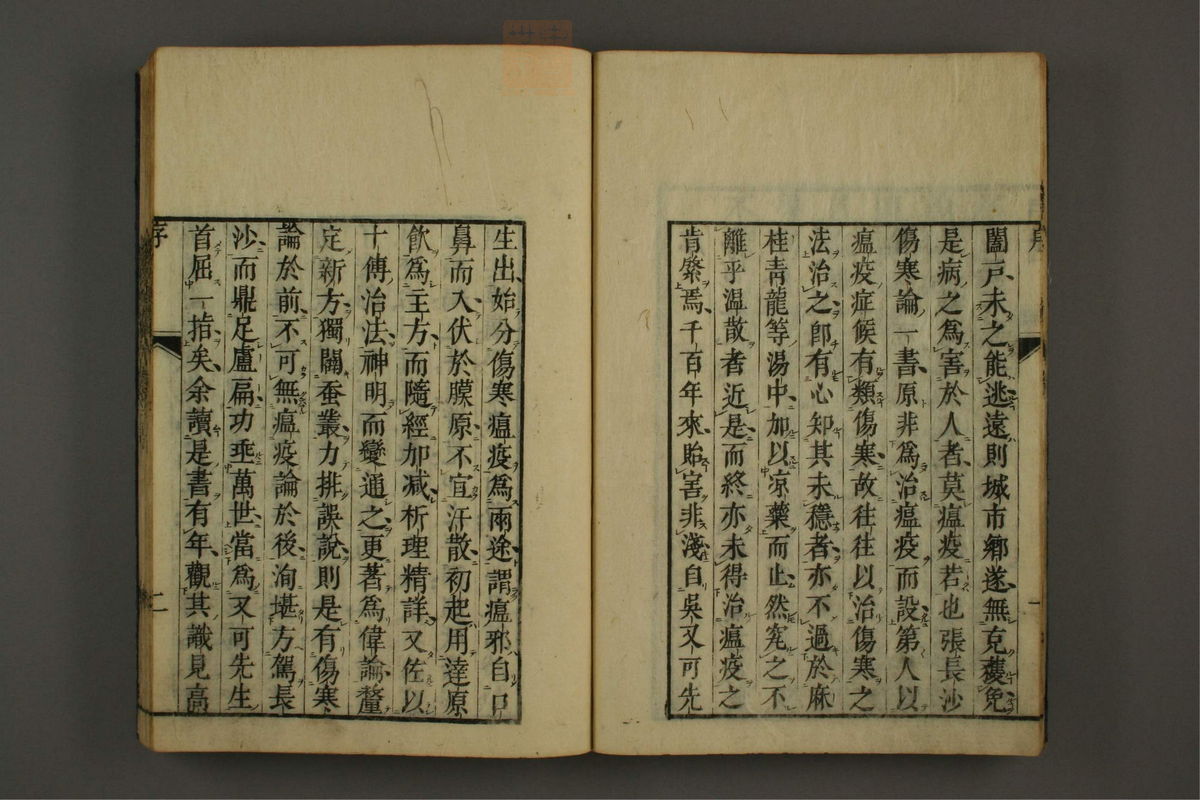 闔戸未之能逃遠則城市郷遂無克獲免
是病之為害於人者莫瘟疫若也張長沙
傷寒論一書原非為治瘟疫而設第人以
瘟疫症候有類傷寒故往往以治傷寒之
法治之卽有心知其未穩者亦不過於麻
桂青龍等湯中加以凉藥而止然究之不
離乎温散者近是而終亦未得治瘟疫之
肯綮焉千百年來貽害非淺自吳又可先
一
生出始分傷寒瘟疫為兩途謂瘟邪自口
鼻而入伏於膜原不宜汗散初起用達原
飲為主方而隨經加减析理精詳又佐以
十傳治法神明而變通之更著為偉論釐
定新方獨闢蚕叢力排誤說則是有傷寒
論於前不可無瘟疫論於後洵堪方駕長
沙而鼎足盧扁功乖萬世當為又可先生
首屈一指矣余讀是書有年觀其識見高
序
二